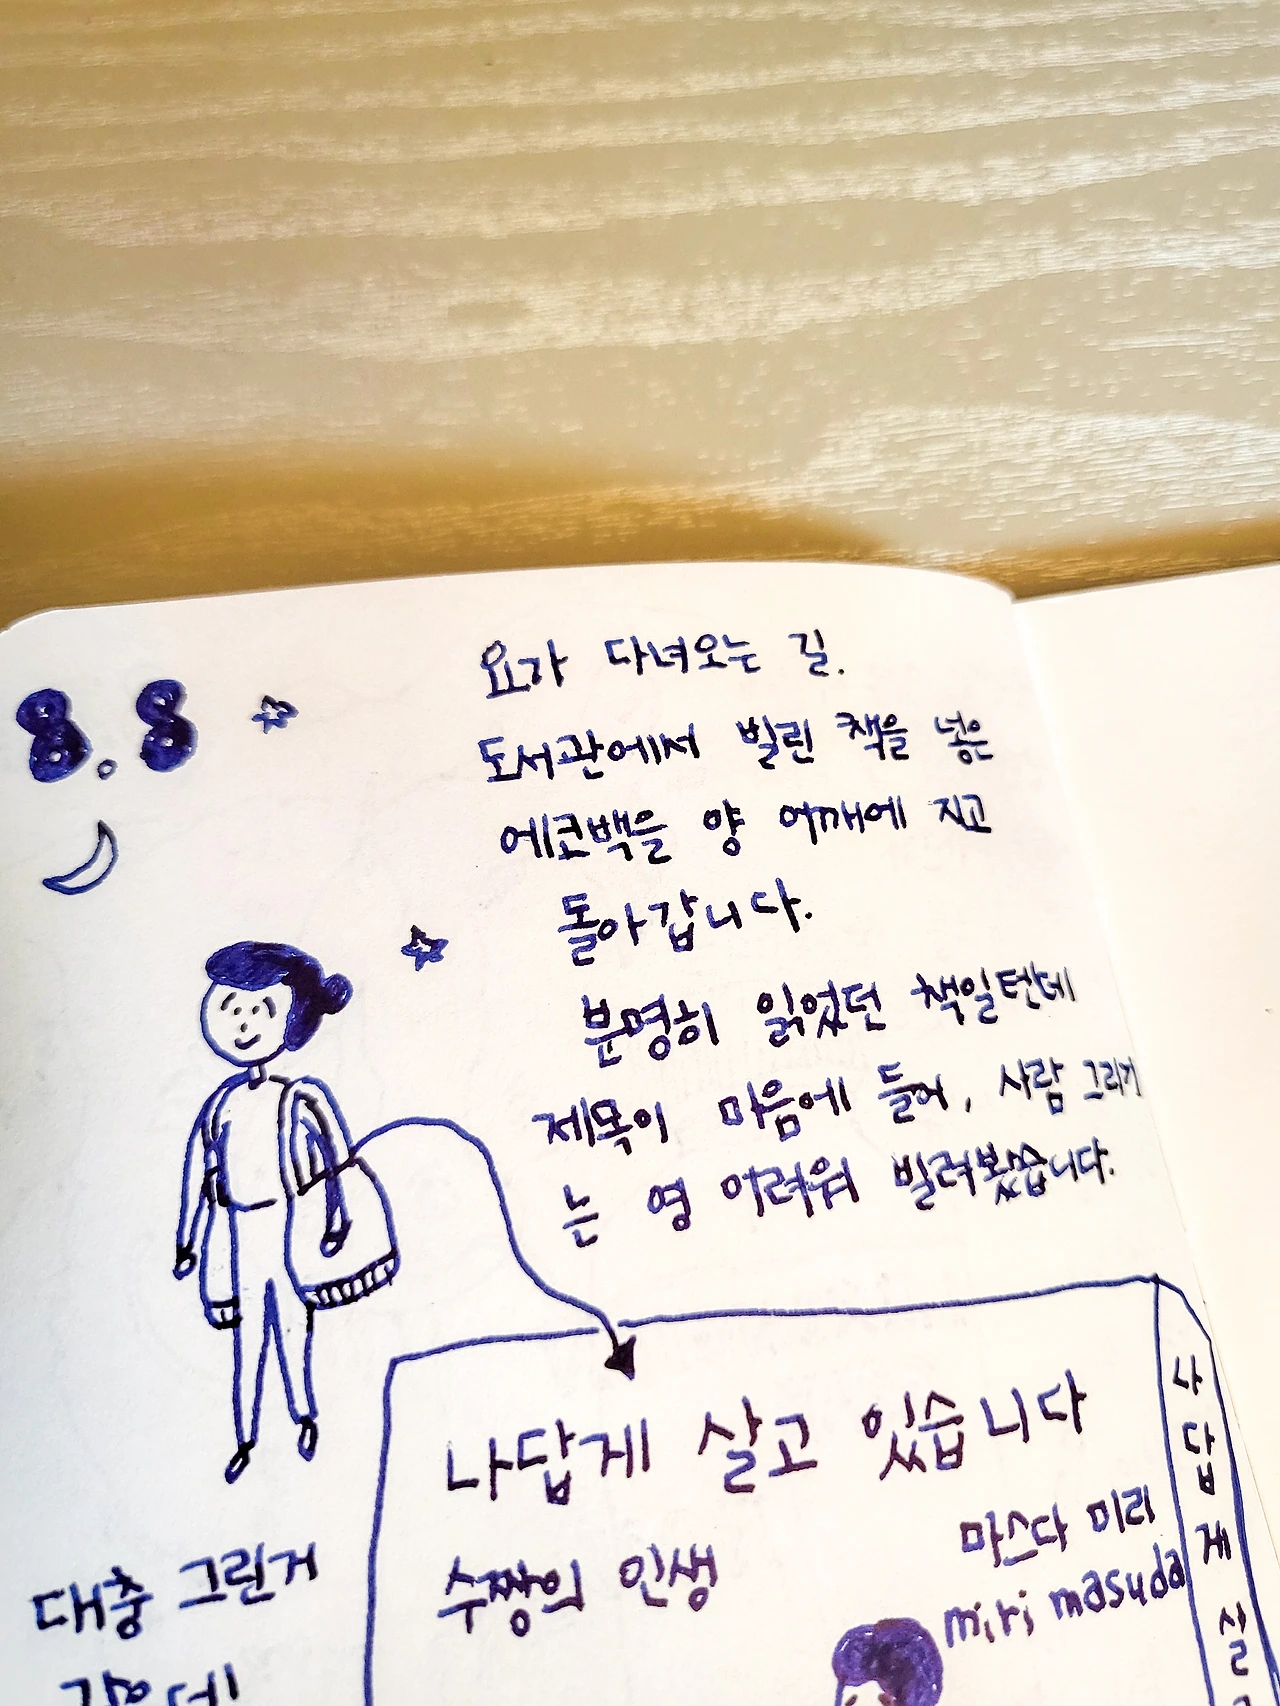 8.8
요가 다녀오는 길.
도서관에서 빌린 책을 넣은
에코백을 양 어깨에 지고
돌아갑니다.
분명히 읽었던 책일텐데
제목이 마음에 들어, 사람 그리기
는 영 어려워 빌려봤습니다.
나답게 살고 있습니다
수짱의 인생
마스다 미리
miri masuda
나답게 살
대충 그린거
같은데